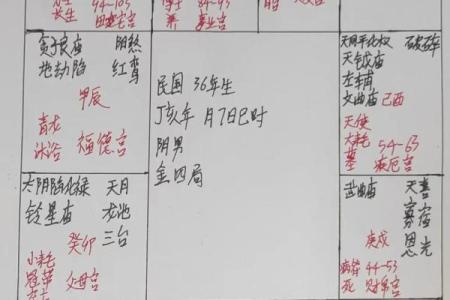 长生 94-103
田宅宫
养 84-93
事业宫
贪狼庙 阴煞
地劫陷 红鸾
甲辰
青龙
沐浴 福德宫
太阴陷化禄 天月
铃星庙 龙池
三台
癸卯
小耗
冠带 父母宫
民国 36年生
丁亥年 月7日巳时
阴男
金四局
天同平化权 破碎
天钺庙
左辅
文曲庙 己酉
天使
大耗 54-63
墓 疾厄宫
武曲庙 天喜
寡宿
庚戌 恩光
病符 44-53
死 财帛宫